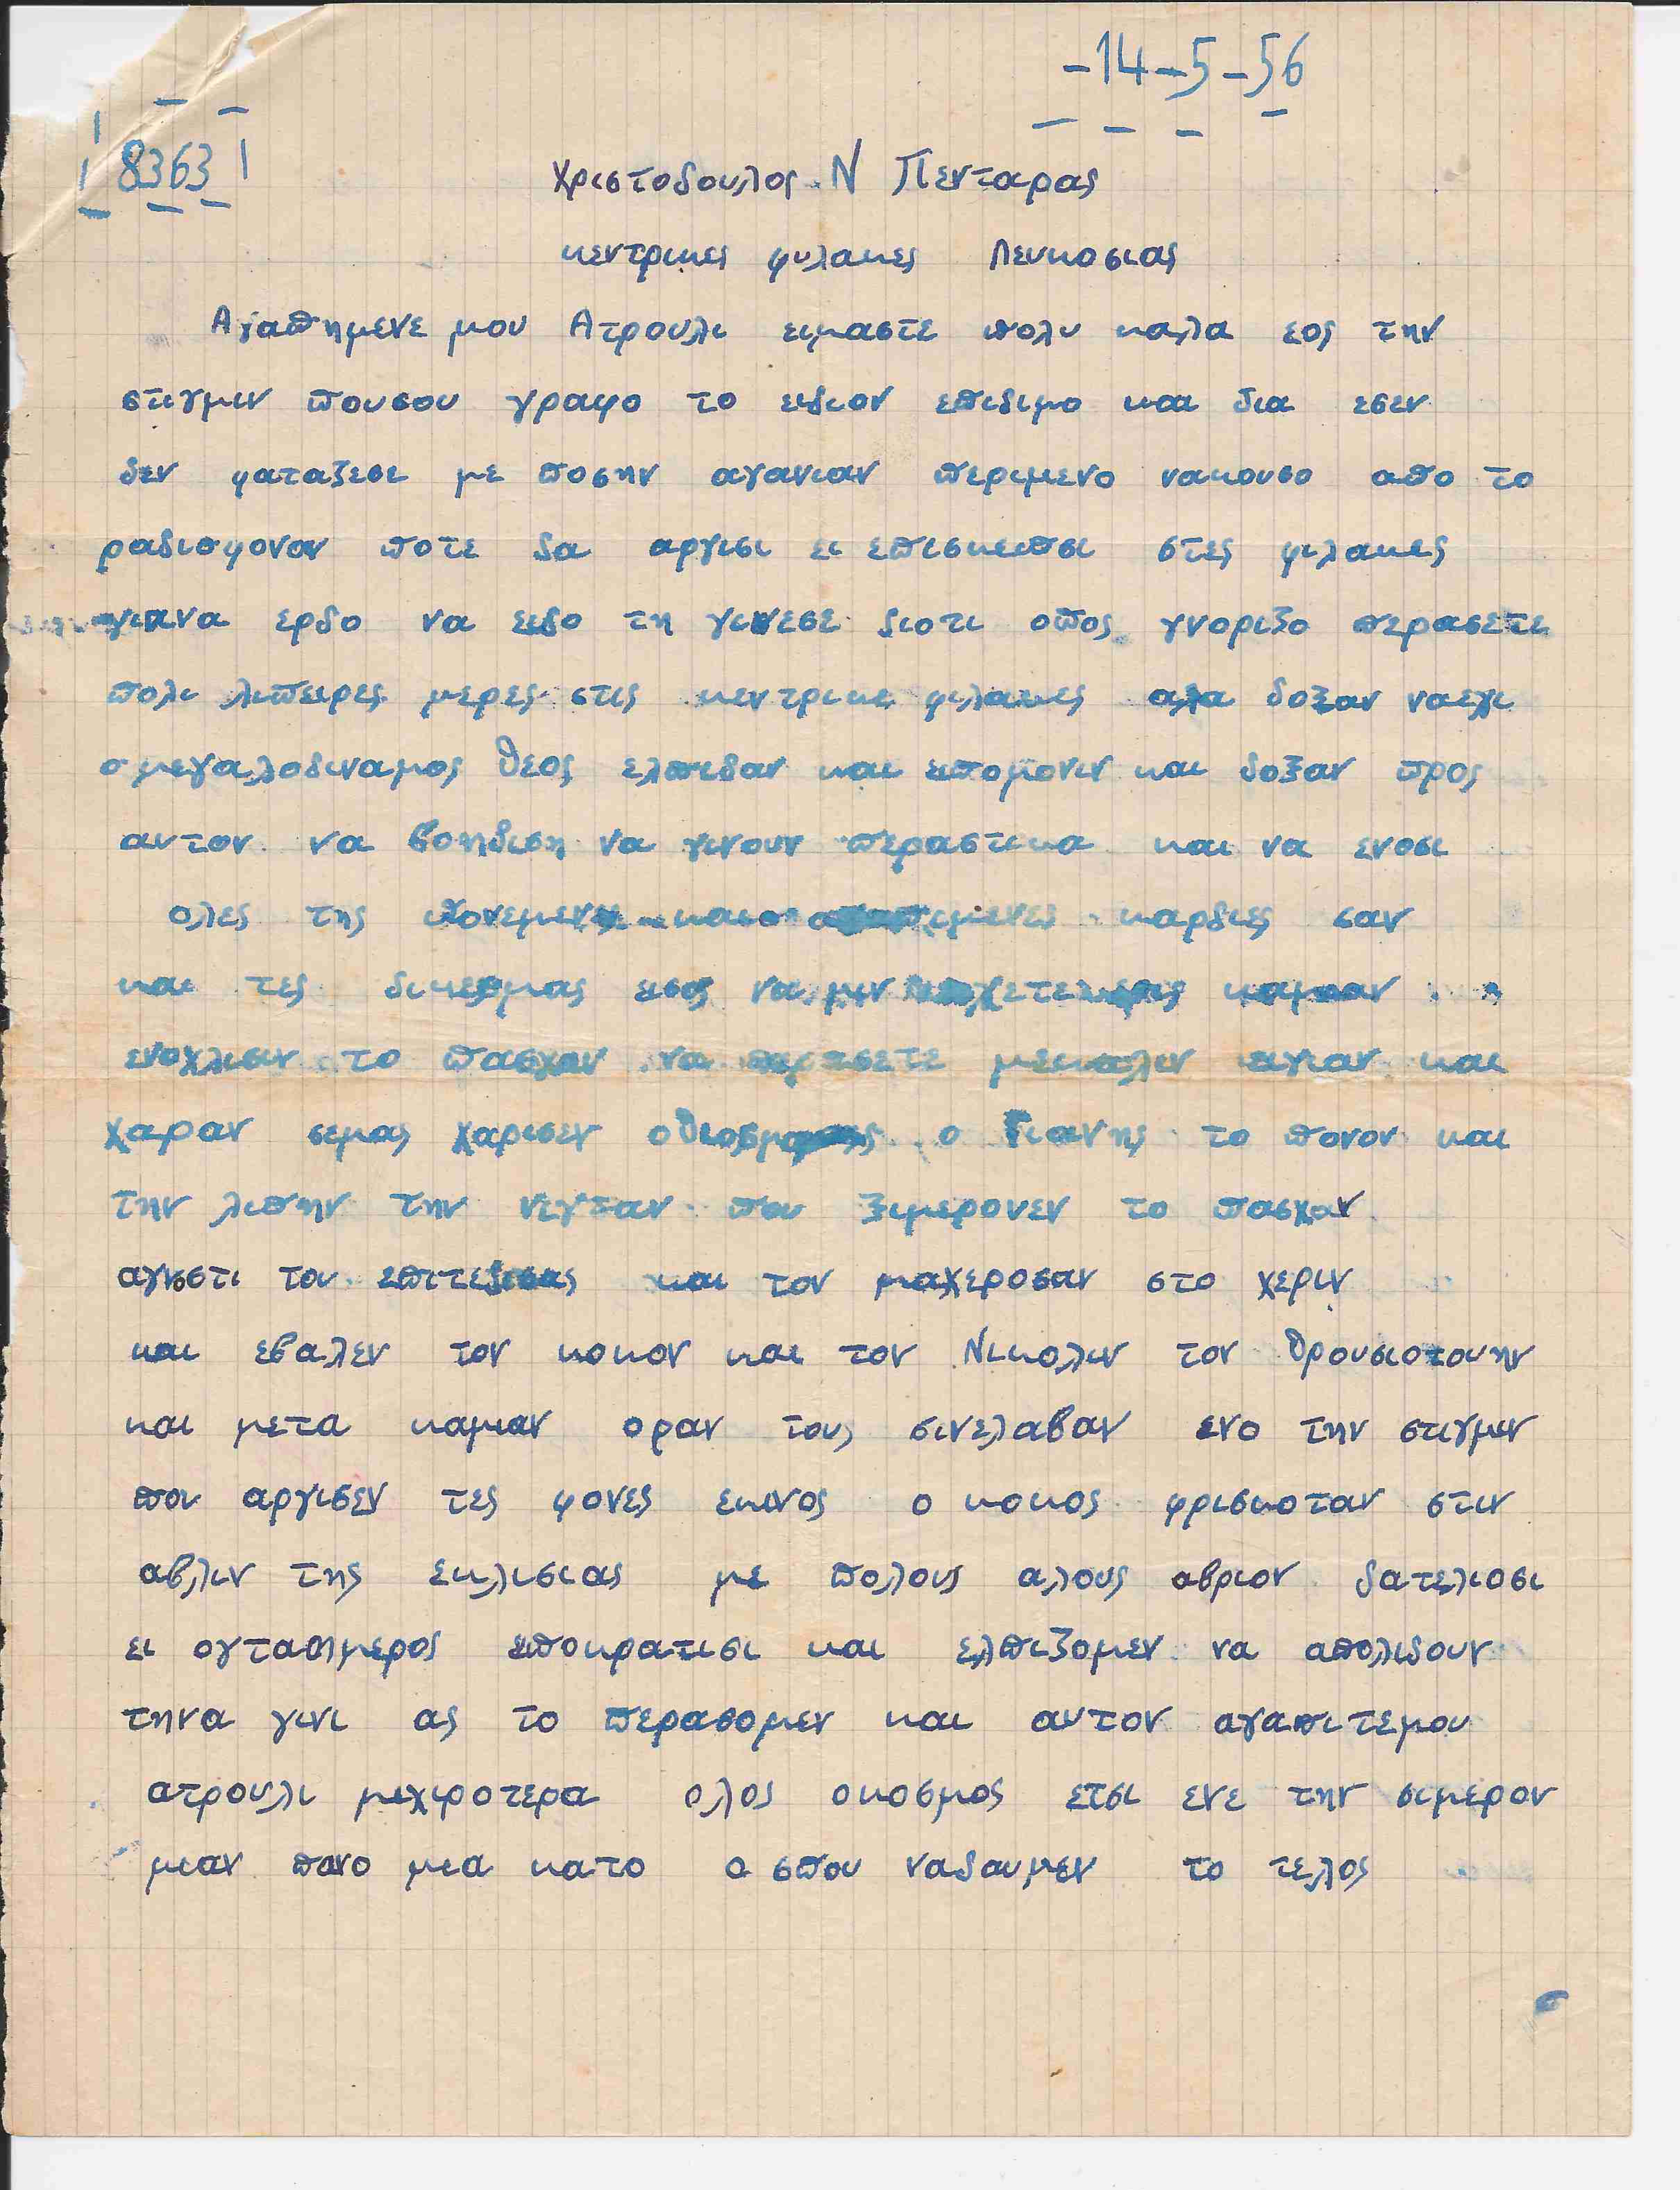 -14-5-56
8363
Χριστοδουλος Ν Πενταρας
κεντρικες φυλακες Λευκοσιας
Αγαπημενε μου Ατρουλι ειμαστε πολυ καλα εος την
στιγμιν πουσου γραφο το ειδιον επιδιμο και δια εσεν
δεν φαταζεσε με ποσην αγανιαν περιμενο νακουσο απο το
ραδιοφονον ποτε δα αργισι ει επισκειπσι στες φιλακες
γιανα ερδο να ειδο τη γινεσε διοτι οπος γνοριζο περασετε
πολι λιπειρες μερες στις κεντρικε φιλακες αλα δοξαν ναεχι
ο μεγαλοδιναμος θεος ελπιδαν και ειπομονιν και δοξαν προς
αυτον να βοηδιση να γινουν περαστικα και να ενοσι
ολες της πονεμενες και καρδιες σαν
και τες δικεσμας εισος να μιν καμιαν
ενοχλισιν το πασχαν να περασετε μεκαλιν ειγιαν και
χαραν σεμας χαρισεν ο Γιανης το πονον και
την λιπην την νιχταν που ξιμερονεν το πασχαν
αγνοστι του επιτεδισας και τον μαχεροσαν στο χεριν
και εβαλεν τον κοκον και τον Νικολιν τον θρουσιοτουην
και μετα καμιαν οραν τους σινελαβαν ενο την στιγμιν
που αργισεν τες φονες εκινος ο κοκος φρισκοταν στιν
αβλιν της εκλισιας με πολους αλους αβριον δατελιοσι
ει ογταημερος ειποκρατισι και ελπιζομεν να απολιδουν
τηνα γινι ας το περασομεν και αυτον αγαπιτεμου
ατρουλι μιχιροτερα ολος οκοσμος ετσι ενε την σιμερον
μιαν πανο μια κατο ο σπου ναδουμεν το τελος